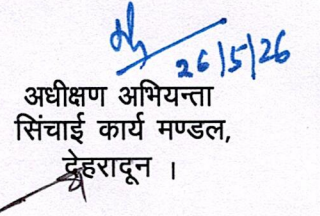 26/5/26
अधीक्षण अभियन्ता
सिंचाई कार्य मण्डल,
देहरादून ।